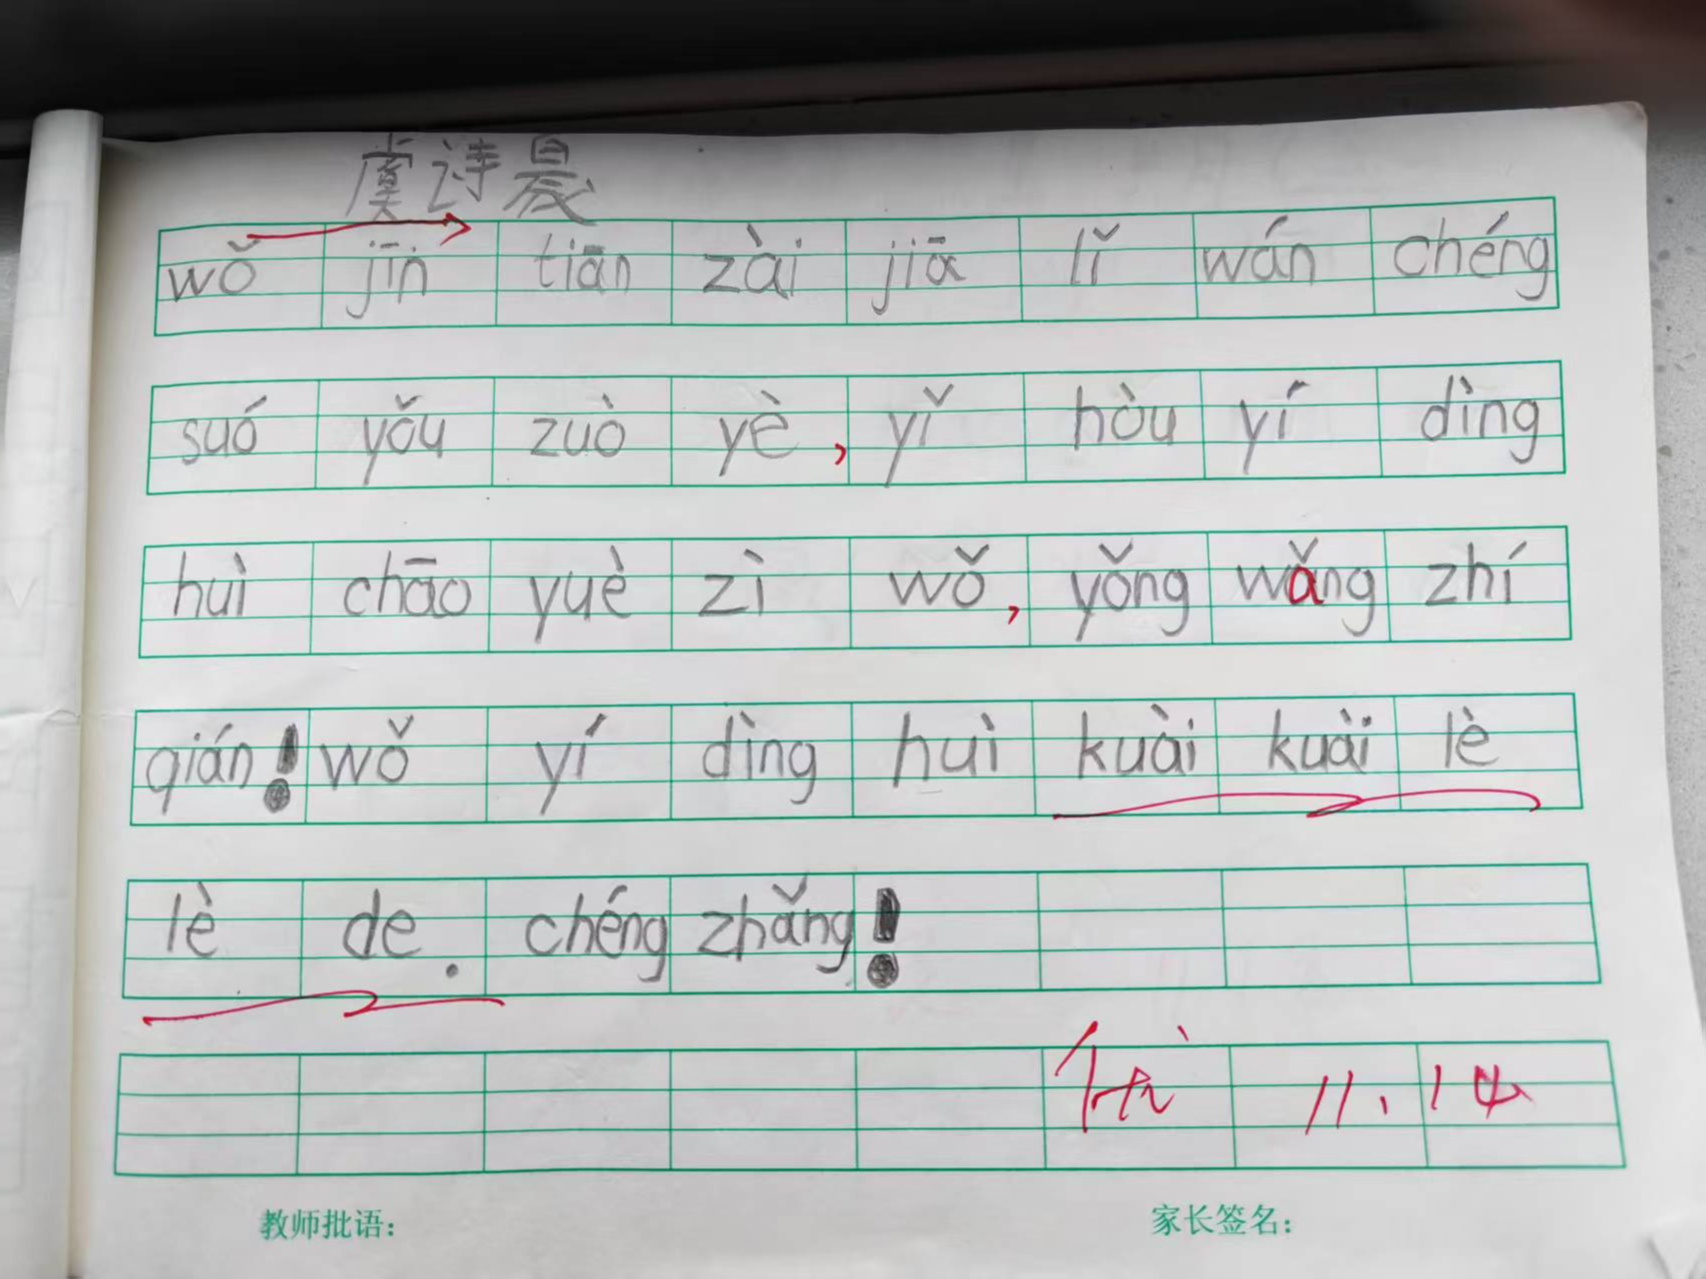 虞诗晨
wǒ jīn tiān zài jiā lǐ wán chéng
suó yǒu zuò yè, yǐ hòu yí dìng
huì chāo yuè zì wǒ, yǒng wǎng zhí
qián! wǒ yí dìng huì kuài kuài lè
lè de. chéng zhǎng!
优 11.14
教师批语: 家长签名: